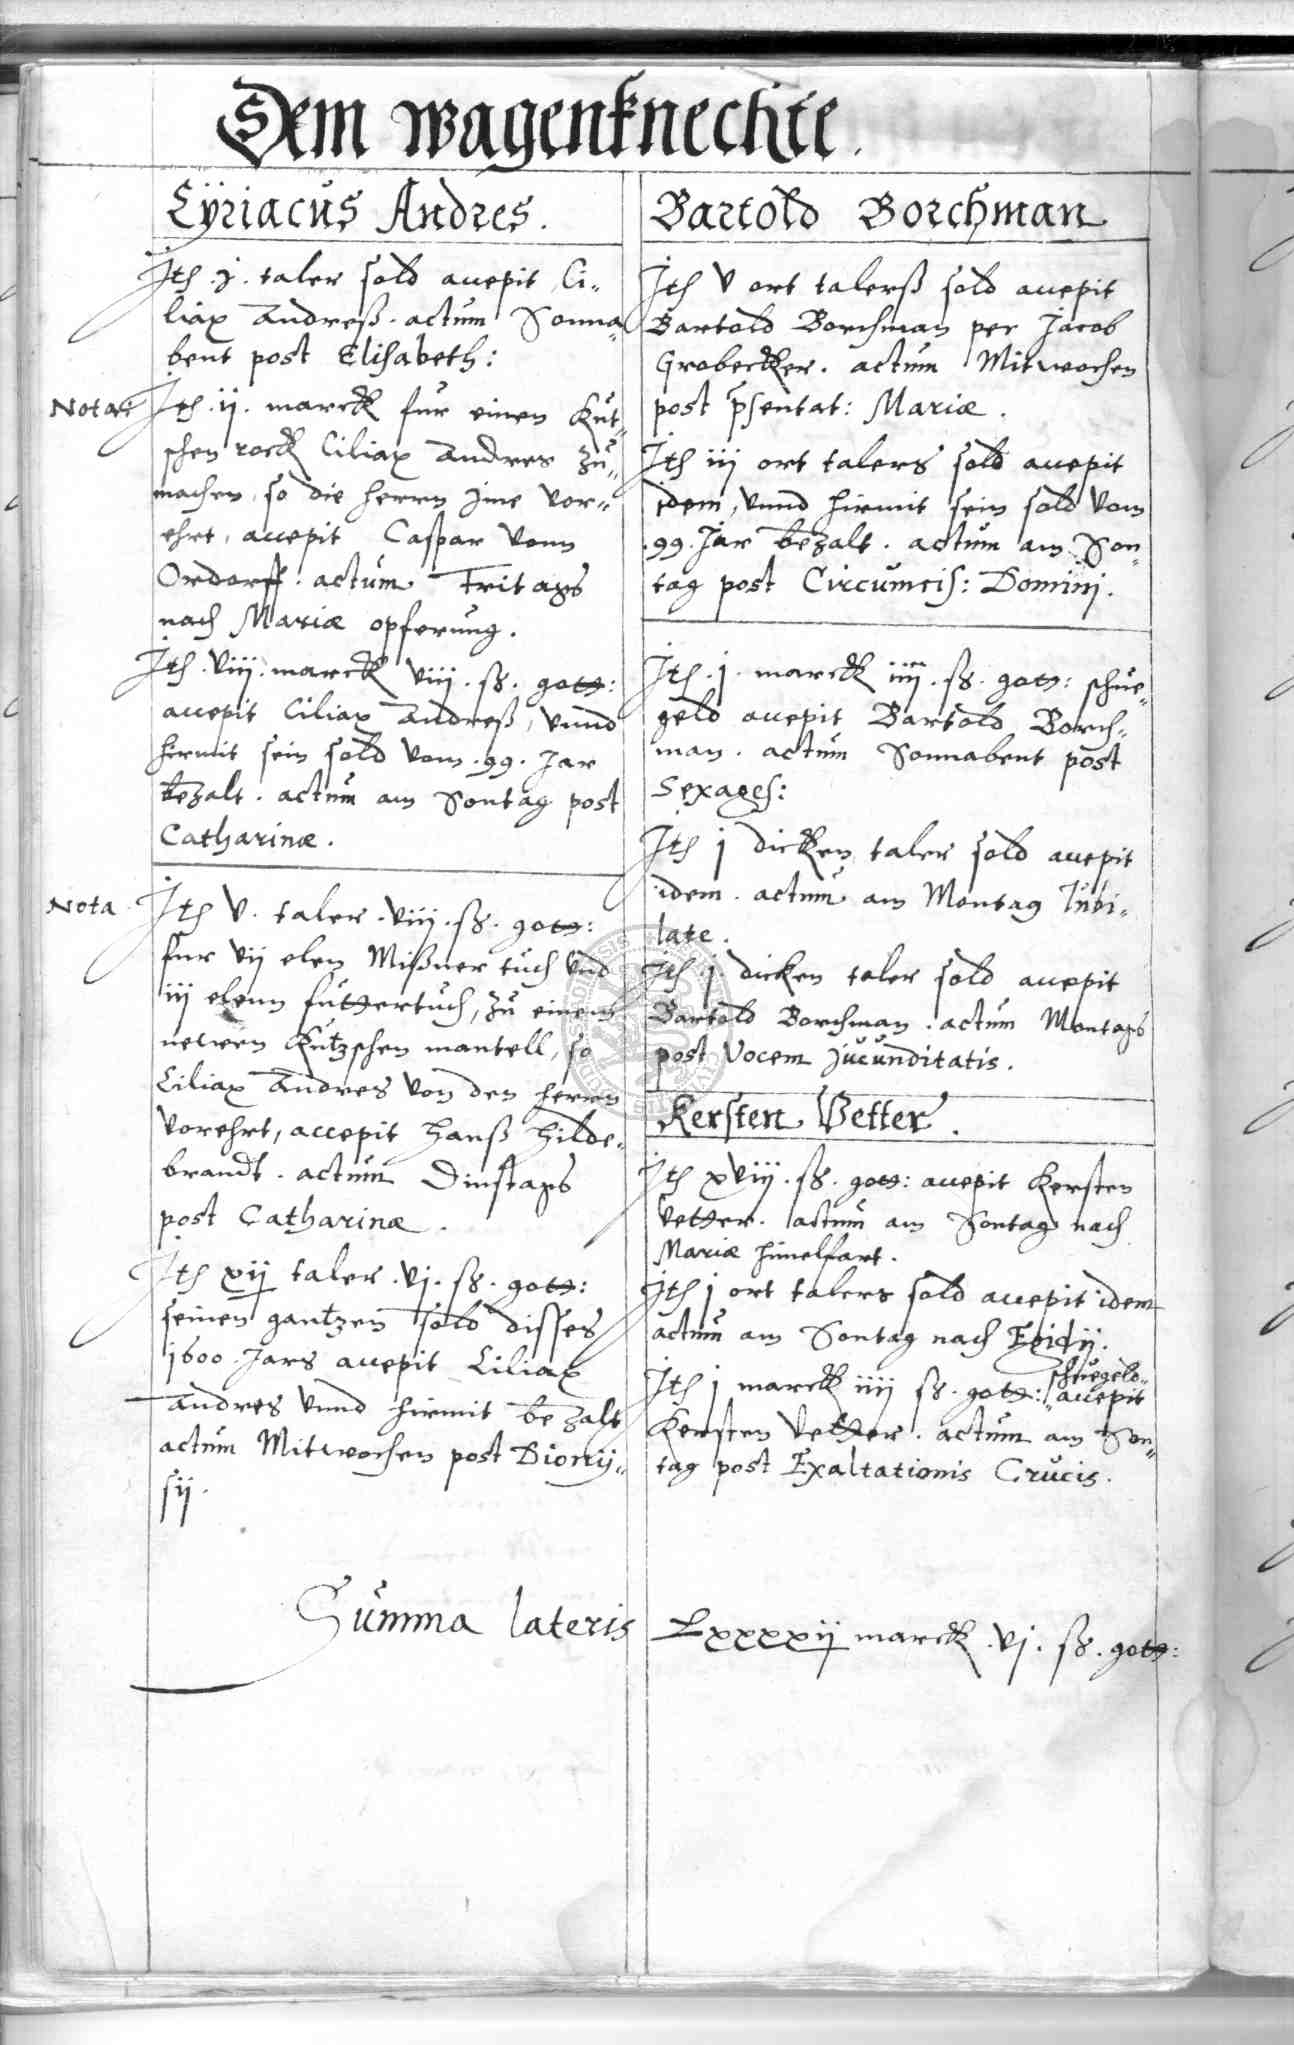 Dem wagenknechte.
Cÿriacus Andres.
Ith .j. taler sold accepit Ci-
liax Andreß. actum Sonna-
bent post Elisabeth:
Nota
Ith .ij. marck fur einen Kut-
schen rock Ciliax Andres zu-
machen, so die herrn jme vor-
ehrt, accepit Caspar vonn
Ordorff. actum Fritags
nach Mariæ opferung.
Ith .viij. marck viij. ß. gott:
accepit Ciliax Andreß, vnnd
hirmit sein sold vom .99. Jar
bezalt. actum am Sontag post
Catharinæ.
Nota
Ith v. taler .viij. ß. gott:
fur vij elen Mißner tuch vnd
iij elenn futtertuch, zu einem
newen Kutzschen mantell, so
Ciliax Andres von den herrn
vorehrt, accepit Hanß Hilde-
brandt. actum Dinstags
post Catharinæ.
Ith xij taler .vj. ß. gott:
seinen gantzen sold disses
1600. Jars accepit Ciliax
Andres vnnd hirmit bezalt
actum Mitwochen post Dionÿ-
sij.
Bartold Borchman
Ith v ort talerß sold accepit
Bartold Borchman per Jacob
Grobecker. actum Mitwochen
post p̄sentat: Mariæ.
Ith iij ort talers sold accepit
idem, vnnd hirmit sein sold vom
.99. Jar bezalt. actum am Son-
tag post Circumcis: Dominj.
Ith .j. marck iiij. ß. gott: schue-
geld accepit Bartold Borch-
man. actum Sonnabent post
Sexages:
Ith j dicken taler sold accepit
idem. actum am Montag Jubi-
late.
Ith j. dicken taler sold accepit
Bartold Borchman. actum Montags
post Vocem jucunditatis.
Kersten Vetter.
Ith xviij. ß. gott: accepit Kersten
Vetter. actum am Sontag nach
Mariæ himelfart.
Ith j ort talers sold accepit idem
actum am Sontag nach Egidij.
Ith j marck iiij ß. gott: schuegeld- accepit
Kersten Vetter. actum am Son-
tag post Exaltationis Crucis.
Summa lateris Lxxxxij marck .vj. ß. gott: